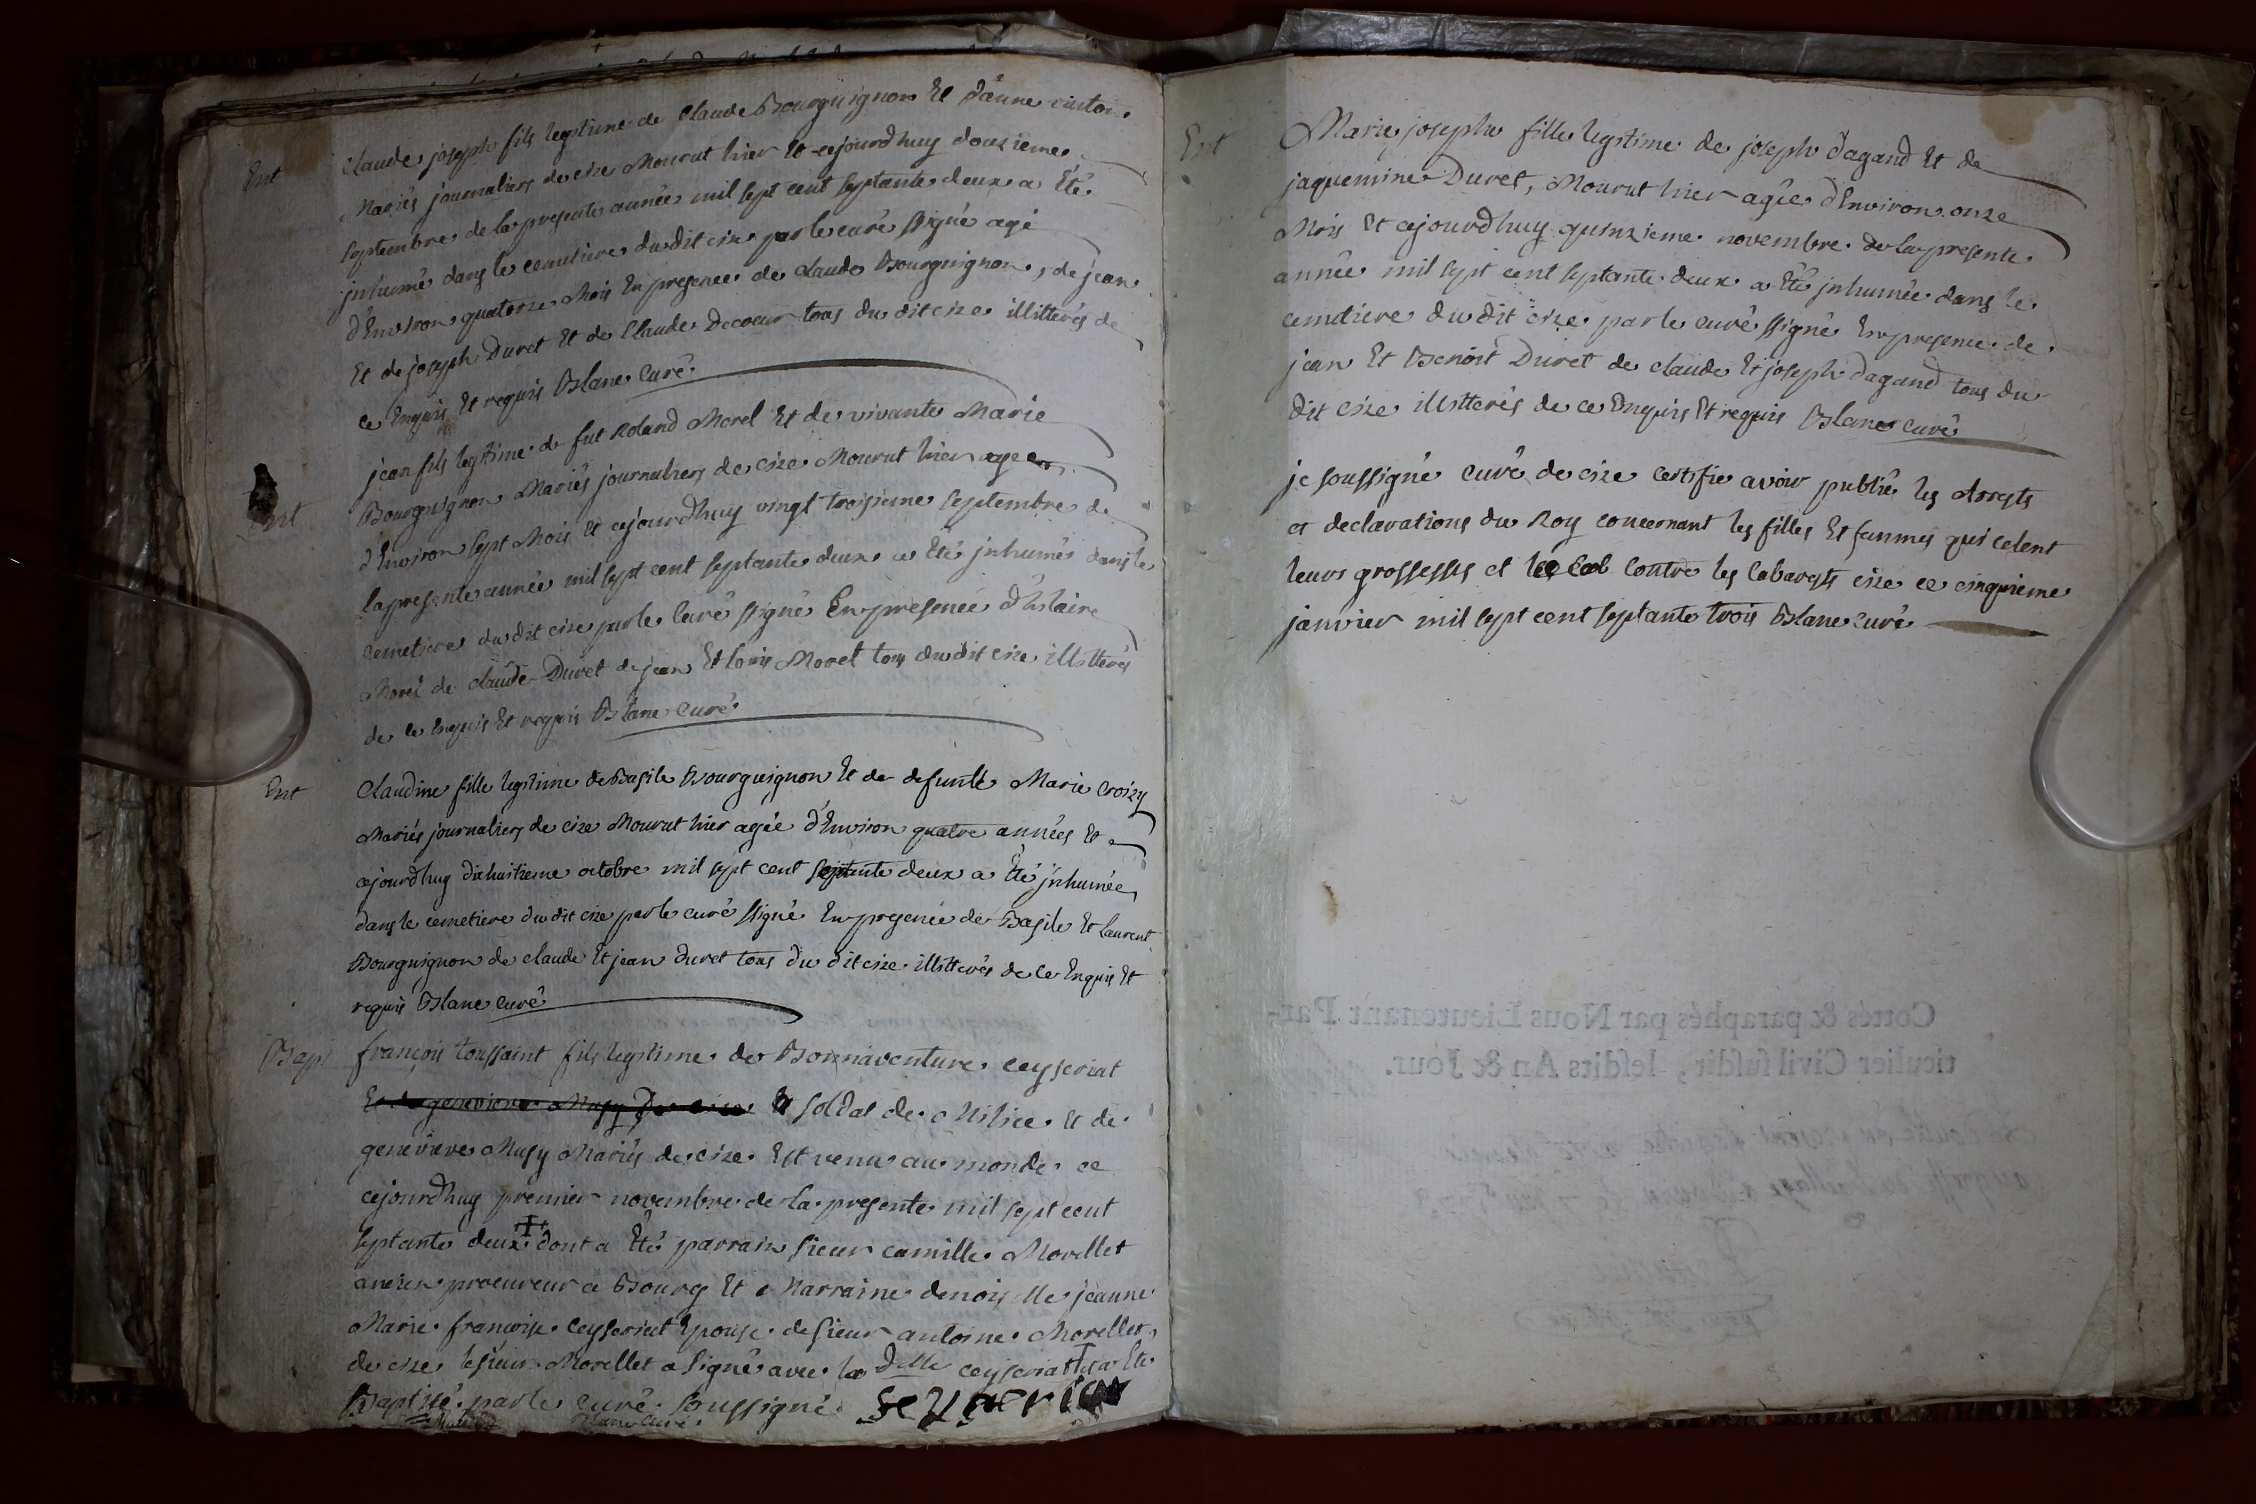 Ent
claude joseph fils legitime de claude Bourguignon Et d'anne
Mariés journaliers de cize Mourut hier Et cejourdhuy douzieme
septembre de la presente année mil sept cent septante deux a Eté
jnhumé dans le cemetiere du dit cize par le curé ssigné agé
d'Environ quatorze Mois En presence de claude Bourguignon, de jean
Et de joseph Duret Et de Claude Decoeur tous du dit cize illitterés de
ce Enquis Et requis Blanc curé
Ent
jean fils legitime de fut Roland Morel Et de vivante Marie
Bourguignon Mariés journaliers de cize Mourut hier agé
d'Environ sept Mois Et cejourdhuy vingt troisieme septembre de
la presente année mil sept cent septante deux a Eté jnhumé dans le
cemetiere du dit cize par le curé ssigné En presence d'hilaire
Morel de claude Duret de jean Et louis Morel tous du dit cize illitterés
de ce Enquis Et requis Blanc curé
Ent
Claudine fille legitime de Basile Bourguignon Et de defunte Marie Croizy
Mariés journaliers de cize Mourut hier agée d'Environ quatre années Et
cejourdhuy dix huitieme octobre mil sept cent septante deux a Eté jnhumée
dans le cemetiere du dit cize par le curé ssigné En presence de Basile Et laurent
Bourguignon de claude Et jean duret tous du dit cize illitterés de ce Enquis Et
requis Blanc curé
Bapt
françois toussaint fils legitime de Bonnaventure ceyseriat
Et de genevieve Musy De cize Et soldat de Milice Et de
genevieve Musy Mariés de cize Est venu au monde ce
cejourdhuy premier novembre de la presente mil sept cent
septante deux + dont a Eté parrain sieur camille Morellet
ancien procureur a Bourg Et Marraine demoiselle jeanne
Marie françoise Ceyseriat Epouse de sieur antoine Morellet
de cize le sieur Morellet a signé avec la Dlle ceyseriat + Et a Eté
Baptisé par le curé soussigné
Blanc curé
Ent
Marie josephe fille legitime de joseph dagand Et de
jaquemine Duret, Mourut hier agée d'Environ onze
Mois Et cejourdhuy quinzieme novembre de la presente
année mil sept cent septante deux a Eté jnhumée dans le
cemetiere du dit cize par le curé ssigné En presence de
jean Et Benoit Duret de claude Et joseph dagand tous du
dit cize illitterés de ce Enquis Et requis Blanc curé
je soussigné curé de cize certifie avoir publié les Arrests
et declarations du Roy concernant les filles Et fammes qui celent
leurs grossesses et contre les cabarests cize ce cinquieme
janvier mil sept cent septante trois Blanc curé
Cottés & paraphés par Nous Lieutenant Par-
ticulier Civil susdit, lesdits An & Jour.